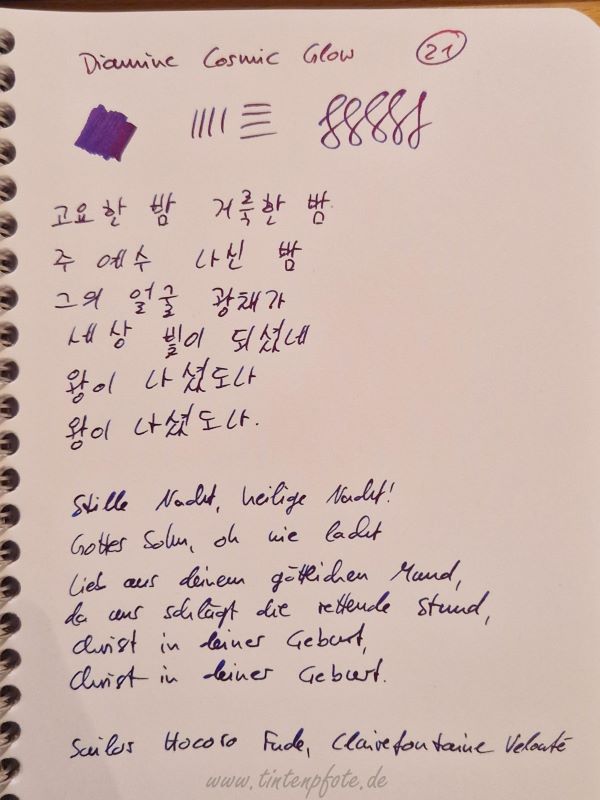 Diamine Cosmic Glow 21
고요한 밤 거룩한 밤
주 예수 나신 밤
그의 얼굴 광채가
세상 빛이 되셨네
왕이 나셨도다
왕이 나셨도다.
Stille Nacht, heilige Nacht!
Gottes Sohn, oh wie lacht
Lieb aus deinem göttlichen Mund,
da uns schlägt die rettende Stund,
Christ in deiner Geburt,
Christ in deiner Geburt.
Sailor Hocoro Fude, Clairefontaine Velouté
www.tintenpfote.de